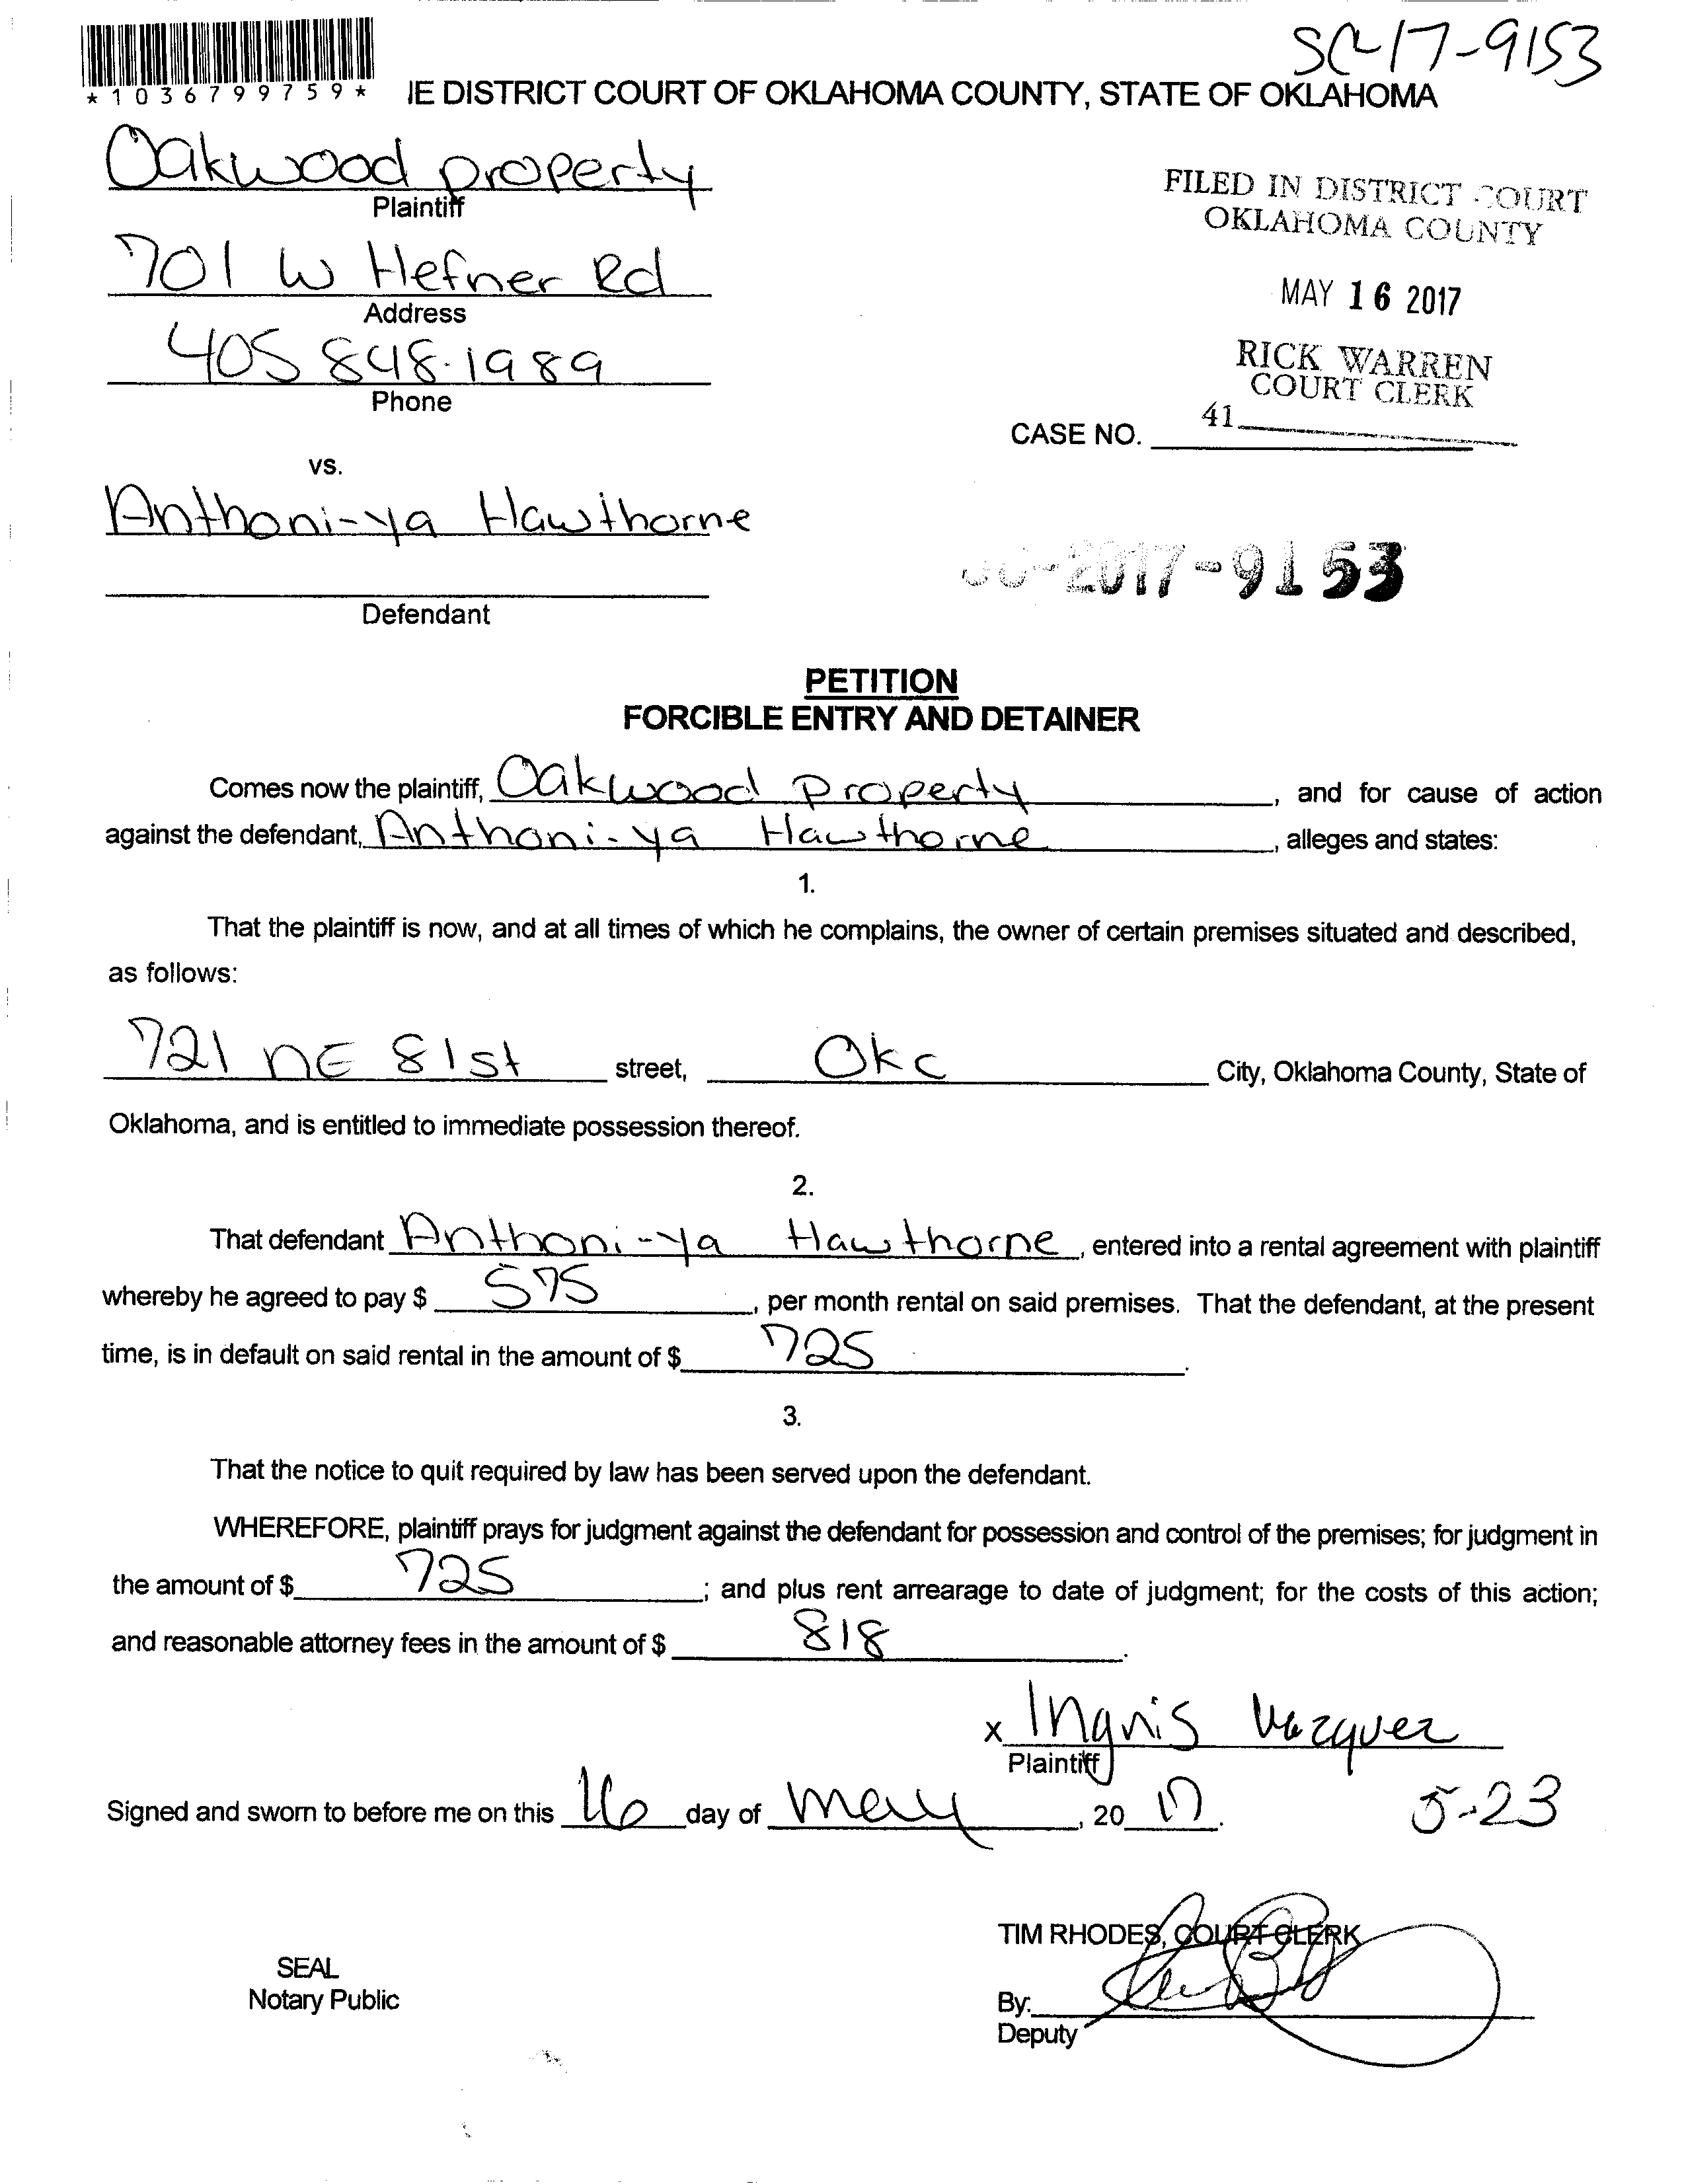 SC-17-9153
*1036799759*
IE DISTRICT COURT OF OKLAHOMA COUNTY, STATE OF OKLAHOMA
Oakwood property
Plaintiff
701 W Hefner Rd
Address
405 848-1989
Phone
FILED IN DISTRICT COURT
OKLAHOMA COUNTY
MAY 16 2017
RICK WARREN
COURT CLERK
41
CASE NO.
vs.
Anthoni-ya Hawthorne
Defendant
-2017-9153
PETITION
FORCIBLE ENTRY AND DETAINER
Comes now the plaintiff, Oakwood Property, and for cause of action
against the defendant, Anthoni-ya Hawthorne, alleges and states:
1.
That the plaintiff is now, and at all times of which he complains, the owner of certain premises situated and described,
as follows:
721 NE 81st street, Okc City, Oklahoma County, State of
Oklahoma, and is entitled to immediate possession thereof.
2.
That defendant Anthoni-ya Hawthorne, entered into a rental agreement with plaintiff
whereby he agreed to pay $ 575, per month rental on said premises. That the defendant, at the present
time, is in default on said rental in the amount of $ 725.
3.
That the notice to quit required by law has been served upon the defendant.
WHEREFORE, plaintiff prays for judgment against the defendant for possession and control of the premises; for judgment in
the amount of $ 725; and plus rent arrearage to date of judgment; for the costs of this action;
and reasonable attorney fees in the amount of $ 818.
x Ingris Vazquez
Plaintiff
Signed and sworn to before me on this 16 day of may, 20 17. 5-23
TIM RHODES, COURT CLERK
SEAL
Notary Public
By:
Deputy